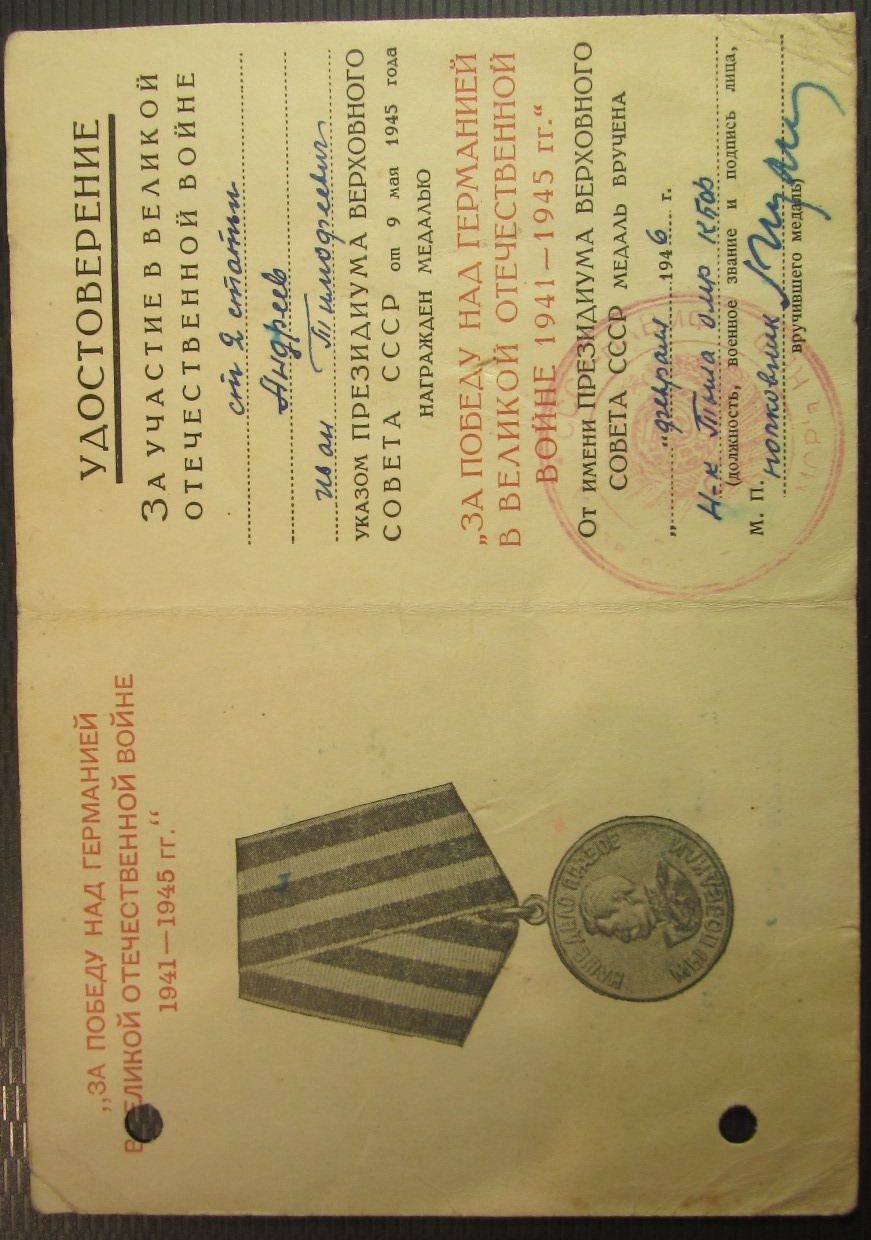 „ЗА ПОБЕДУ НАД ГЕРМАНИЕЙ
В ВЕЛИКОЙ ОТЕЧЕСТВЕННОЙ ВОЙНЕ
1941—1945 гг.“
НАШЕ ДЕЛО ПРАВОЕ
МЫ ПОБЕДИЛИ
УДОСТОВЕРЕНИЕ
ЗА УЧАСТИЕ В ВЕЛИКОЙ
ОТЕЧЕСТВЕННОЙ ВОЙНЕ
ст 2 статьи
Андреев
Иван Тимофеевич
УКАЗОМ ПРЕЗИДИУМА ВЕРХОВНОГО
СОВЕТА СССР от 9 мая 1945 года
НАГРАЖДЕН МЕДАЛЬЮ
„ЗА ПОБЕДУ НАД ГЕРМАНИЕЙ
В ВЕЛИКОЙ ОТЕЧЕСТВЕННОЙ
ВОЙНЕ 1941—1945 гг.“
ОТ ИМЕНИ ПРЕЗИДИУМА ВЕРХОВНОГО
СОВЕТА СССР МЕДАЛЬ ВРУЧЕНА
„ “ февраля 1946 г.
Н-к Тыла КБФ
(должность, военное звание и подпись лица,
М. П. полковник
вручившего медаль)